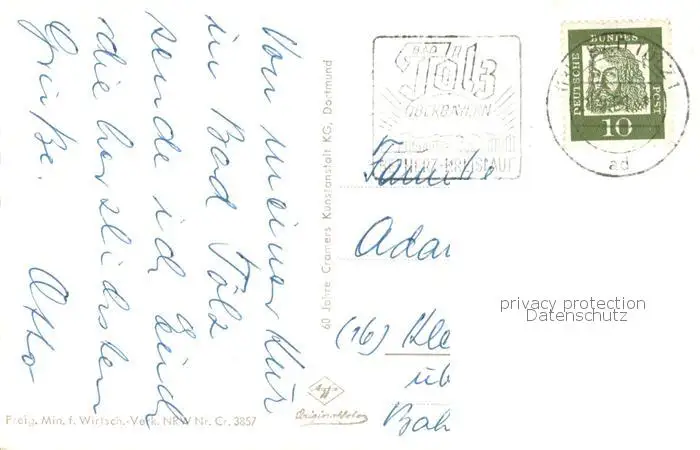 Von meiner Kur
in Bad Tölz
sende ich Euch
die herzlichsten
Grüße.
Otto
60 Jahre Cramers Kunstanstalt KG, Dortmund
BAD
Tölz
OBERBAYERN
HERZ-KREISLAUF
DEUTSCHE
BUNDES
POST
10
ad
Famili
Adar
(16) Kle
üb
Bah
privacy protection
Datenschutz
Agfa
Originalfoto
Freig. Min. f. Wirtsch.-Verk. NRW Nr. Cr. 3857